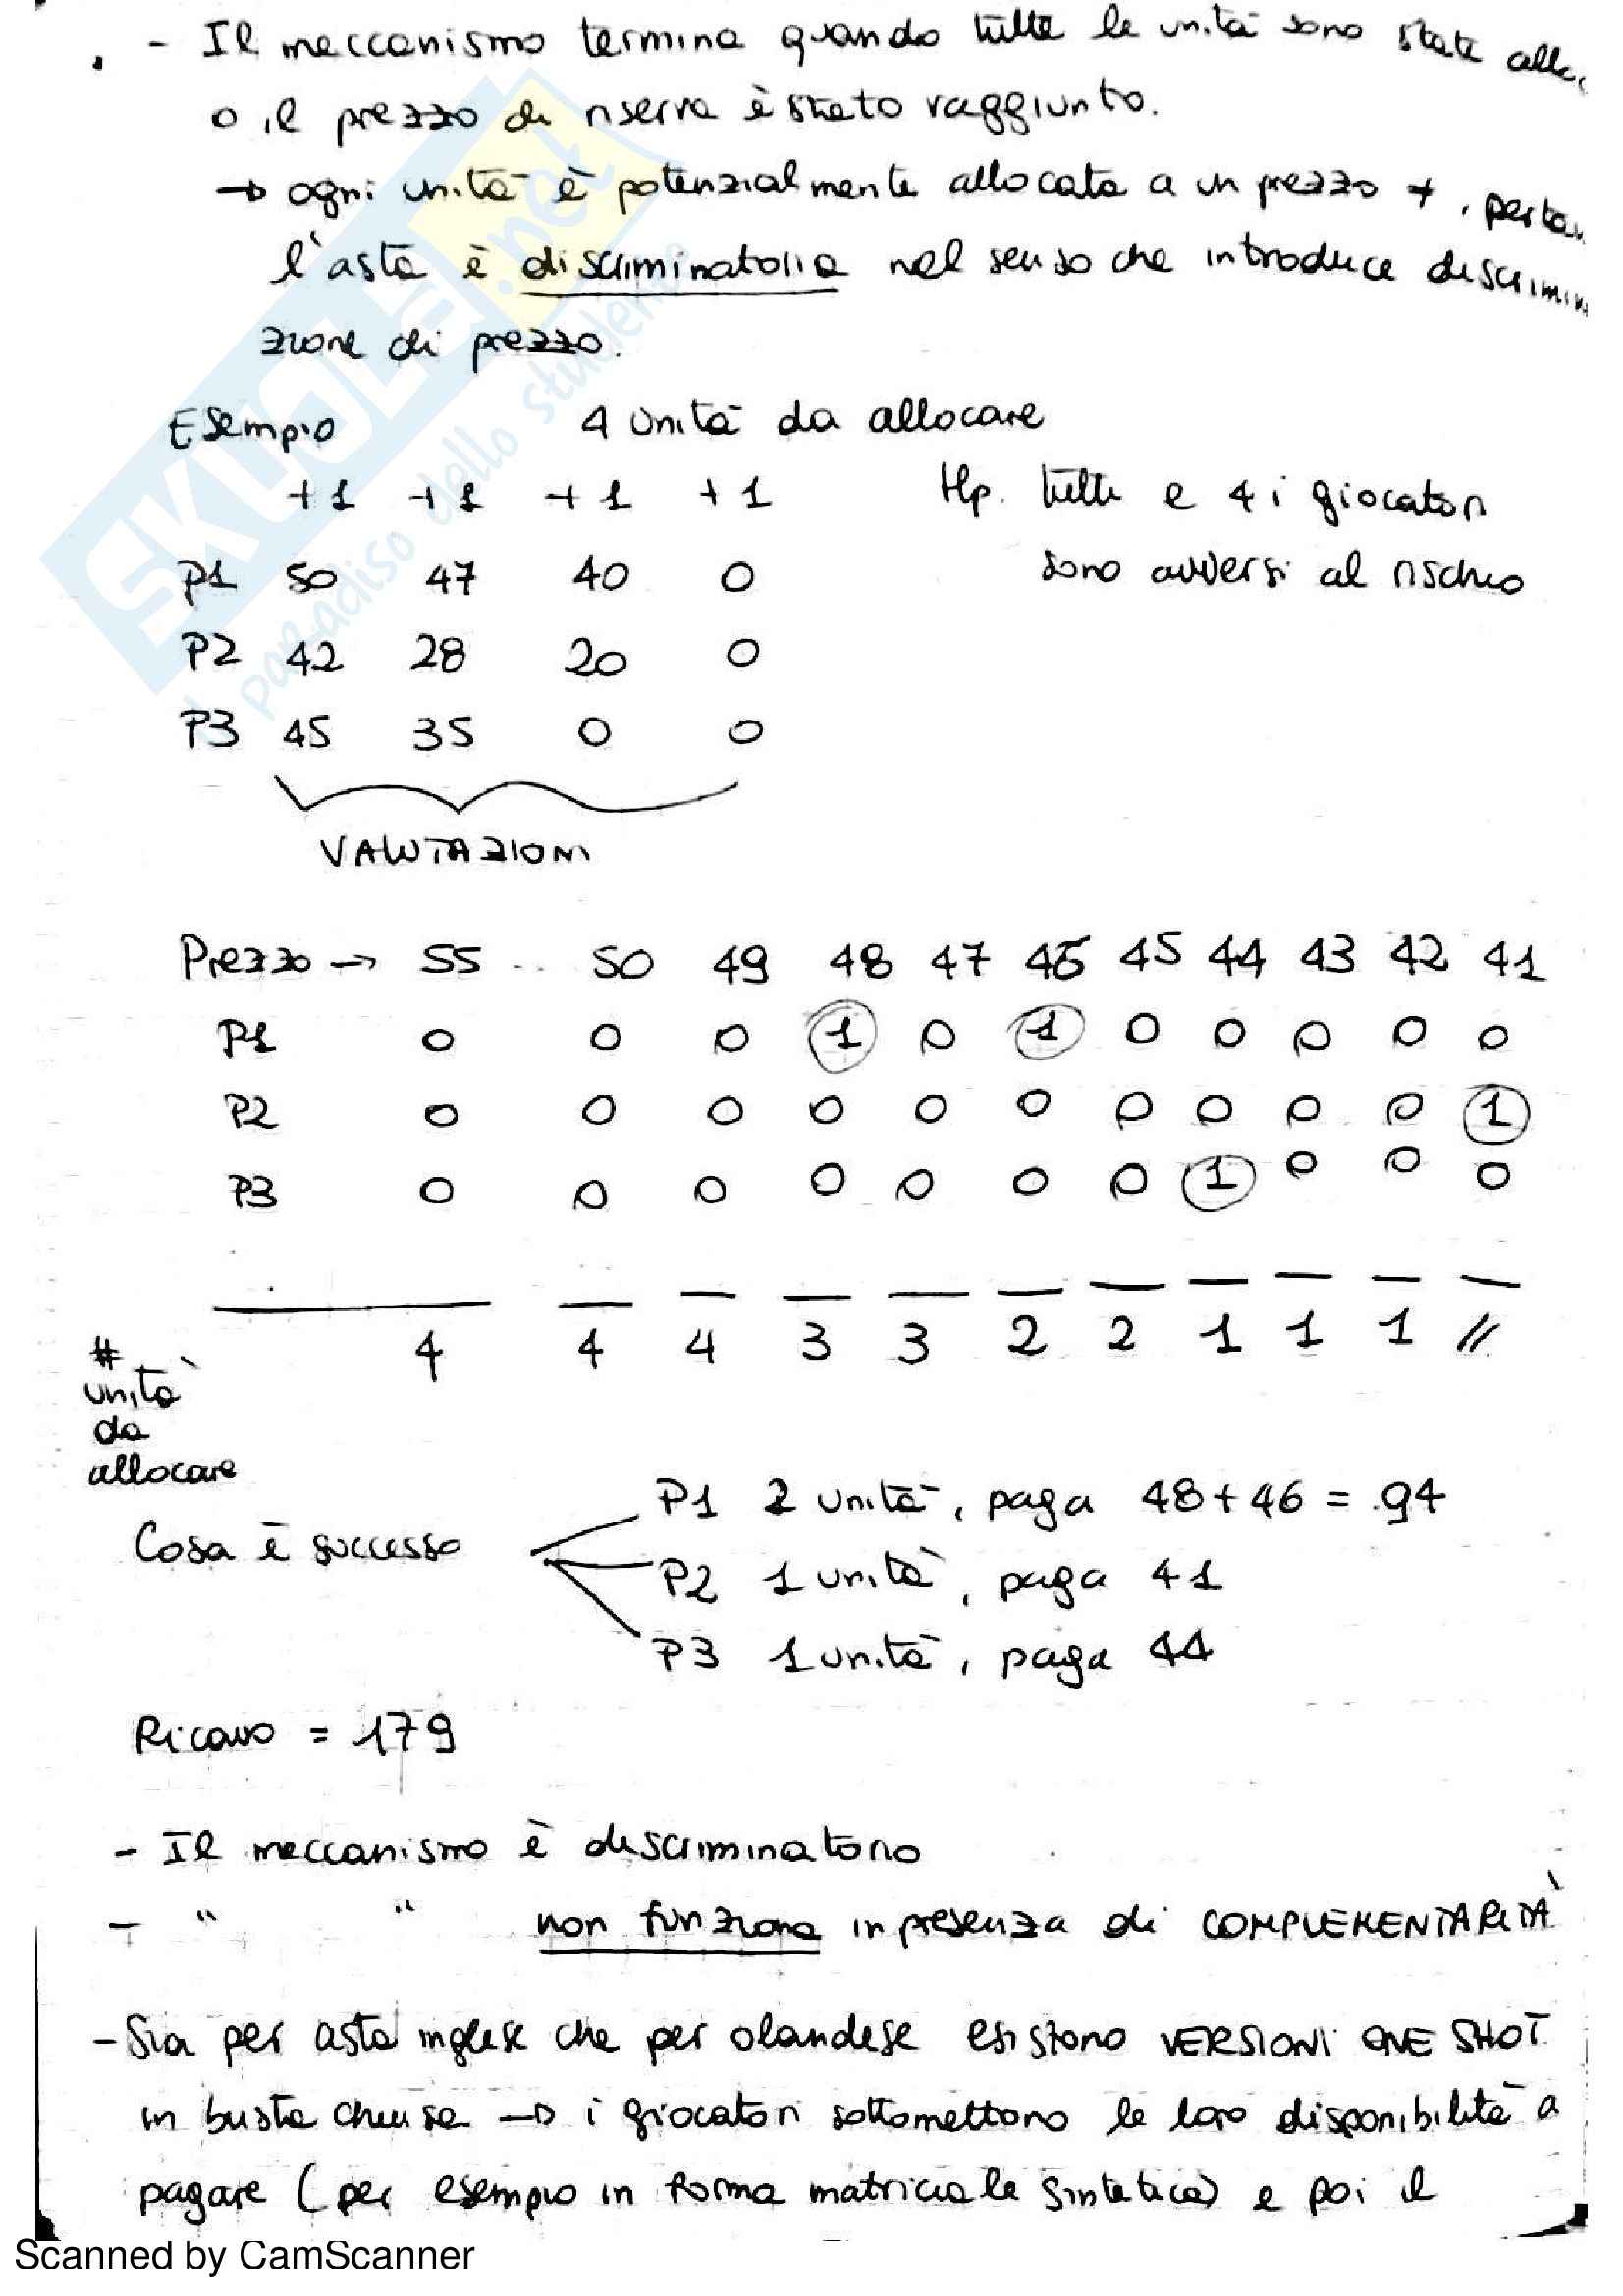 - Il meccanismo termina quando tutte le unità sono state
o il prezzo di riserva è stato raggiunto.
→ ogni unità è potenzialmente allocata a un prezzo ≠,
l'asta è discriminatoria nel senso che introduce discrimin
zione di prezzo.
Esempio 4 unità da allocare
+1 +1 +1 +1 Hp. tutti e 4 i giocatori
P1 50 47 40 0 sono avversi al rischio
P2 42 28 20 0
P3 45 35 0 0
VALUTAZIONI
Prezzo → 55 .. 50 49 48 47 46 45 44 43 42 41
P1 0 0 0 1 0 1 0 0 0 0 0
P2 0 0 0 0 0 0 0 0 0 0 1
P3 0 0 0 0 0 0 0 1 0 0 0
# unità da allocare 4 4 4 3 3 2 2 1 1 1 //
Cosa è successo
P1 2 unità, paga 48+46 = 94
P2 1 unità, paga 41
P3 1 unità, paga 44
Ricavo = 179
- Il meccanismo è discriminatorio
- " " non funziona in presenza di COMPLEMENTARITÀ
- Sia per asta inglese che per olandese esistono VERSIONI ONE SHOT
in busta chiusa → i giocatori sottomettono le loro disponibilità a
pagare (per esempio in forma matriciale sintetica) e poi il
Scanned by CamScanner
SKUOLA.net
il paradiso dello studente